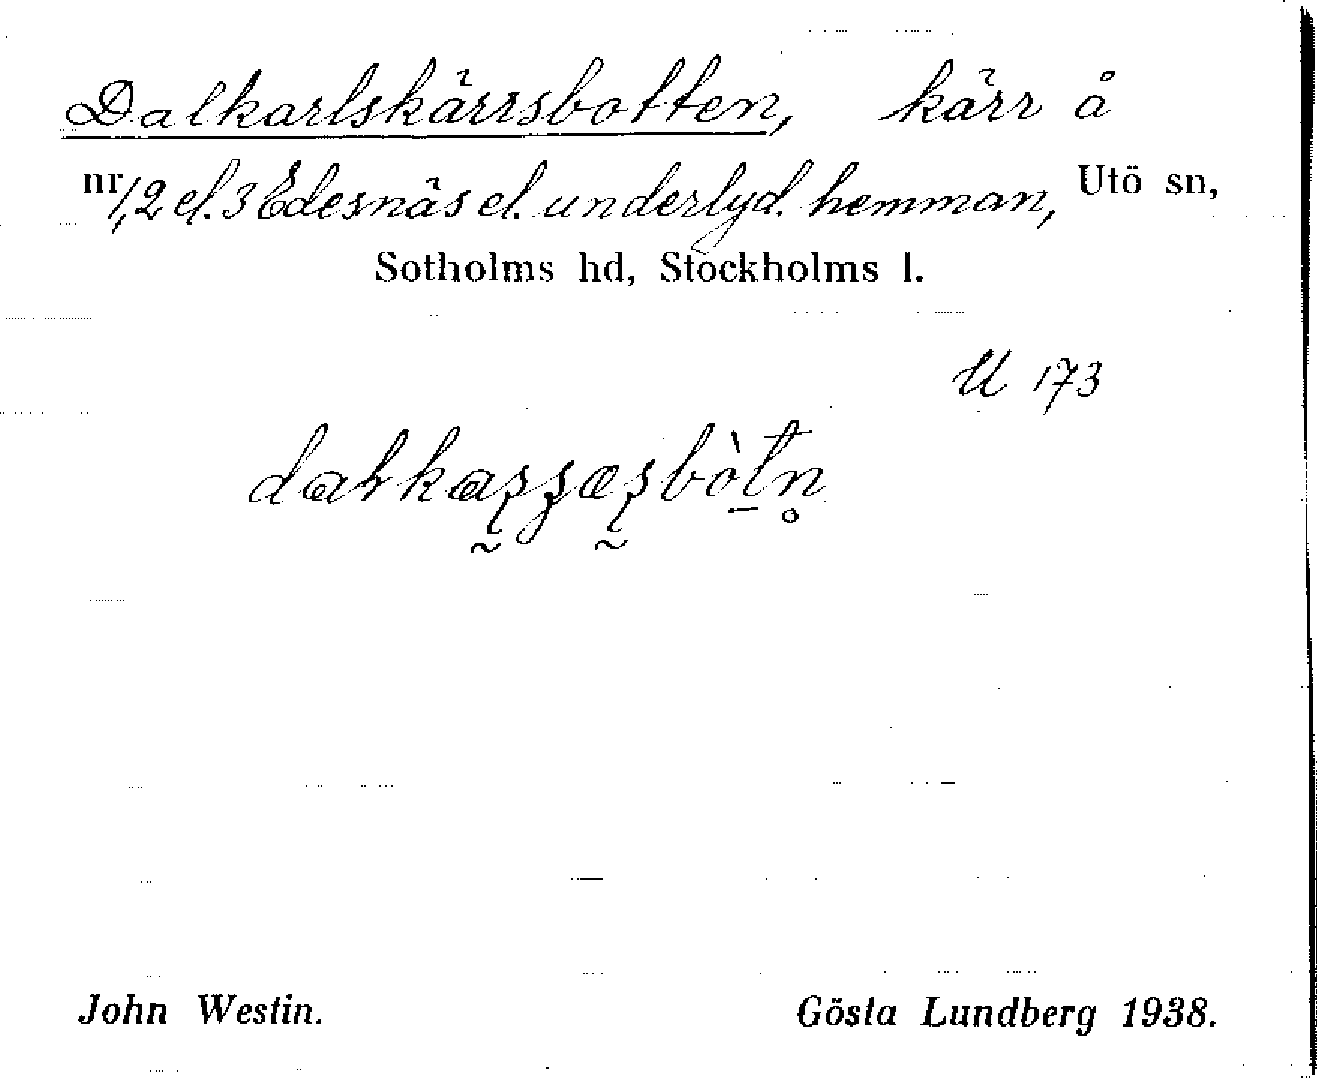 Dalkarlskärrsbotten, kärr å
nr 1,2 el. 3 Edesnäs el. underlyd. hemman, Utö sn,
Sotholms hd, Stockholms l.
U 173
John Westin. Gösta Lundberg 1938.